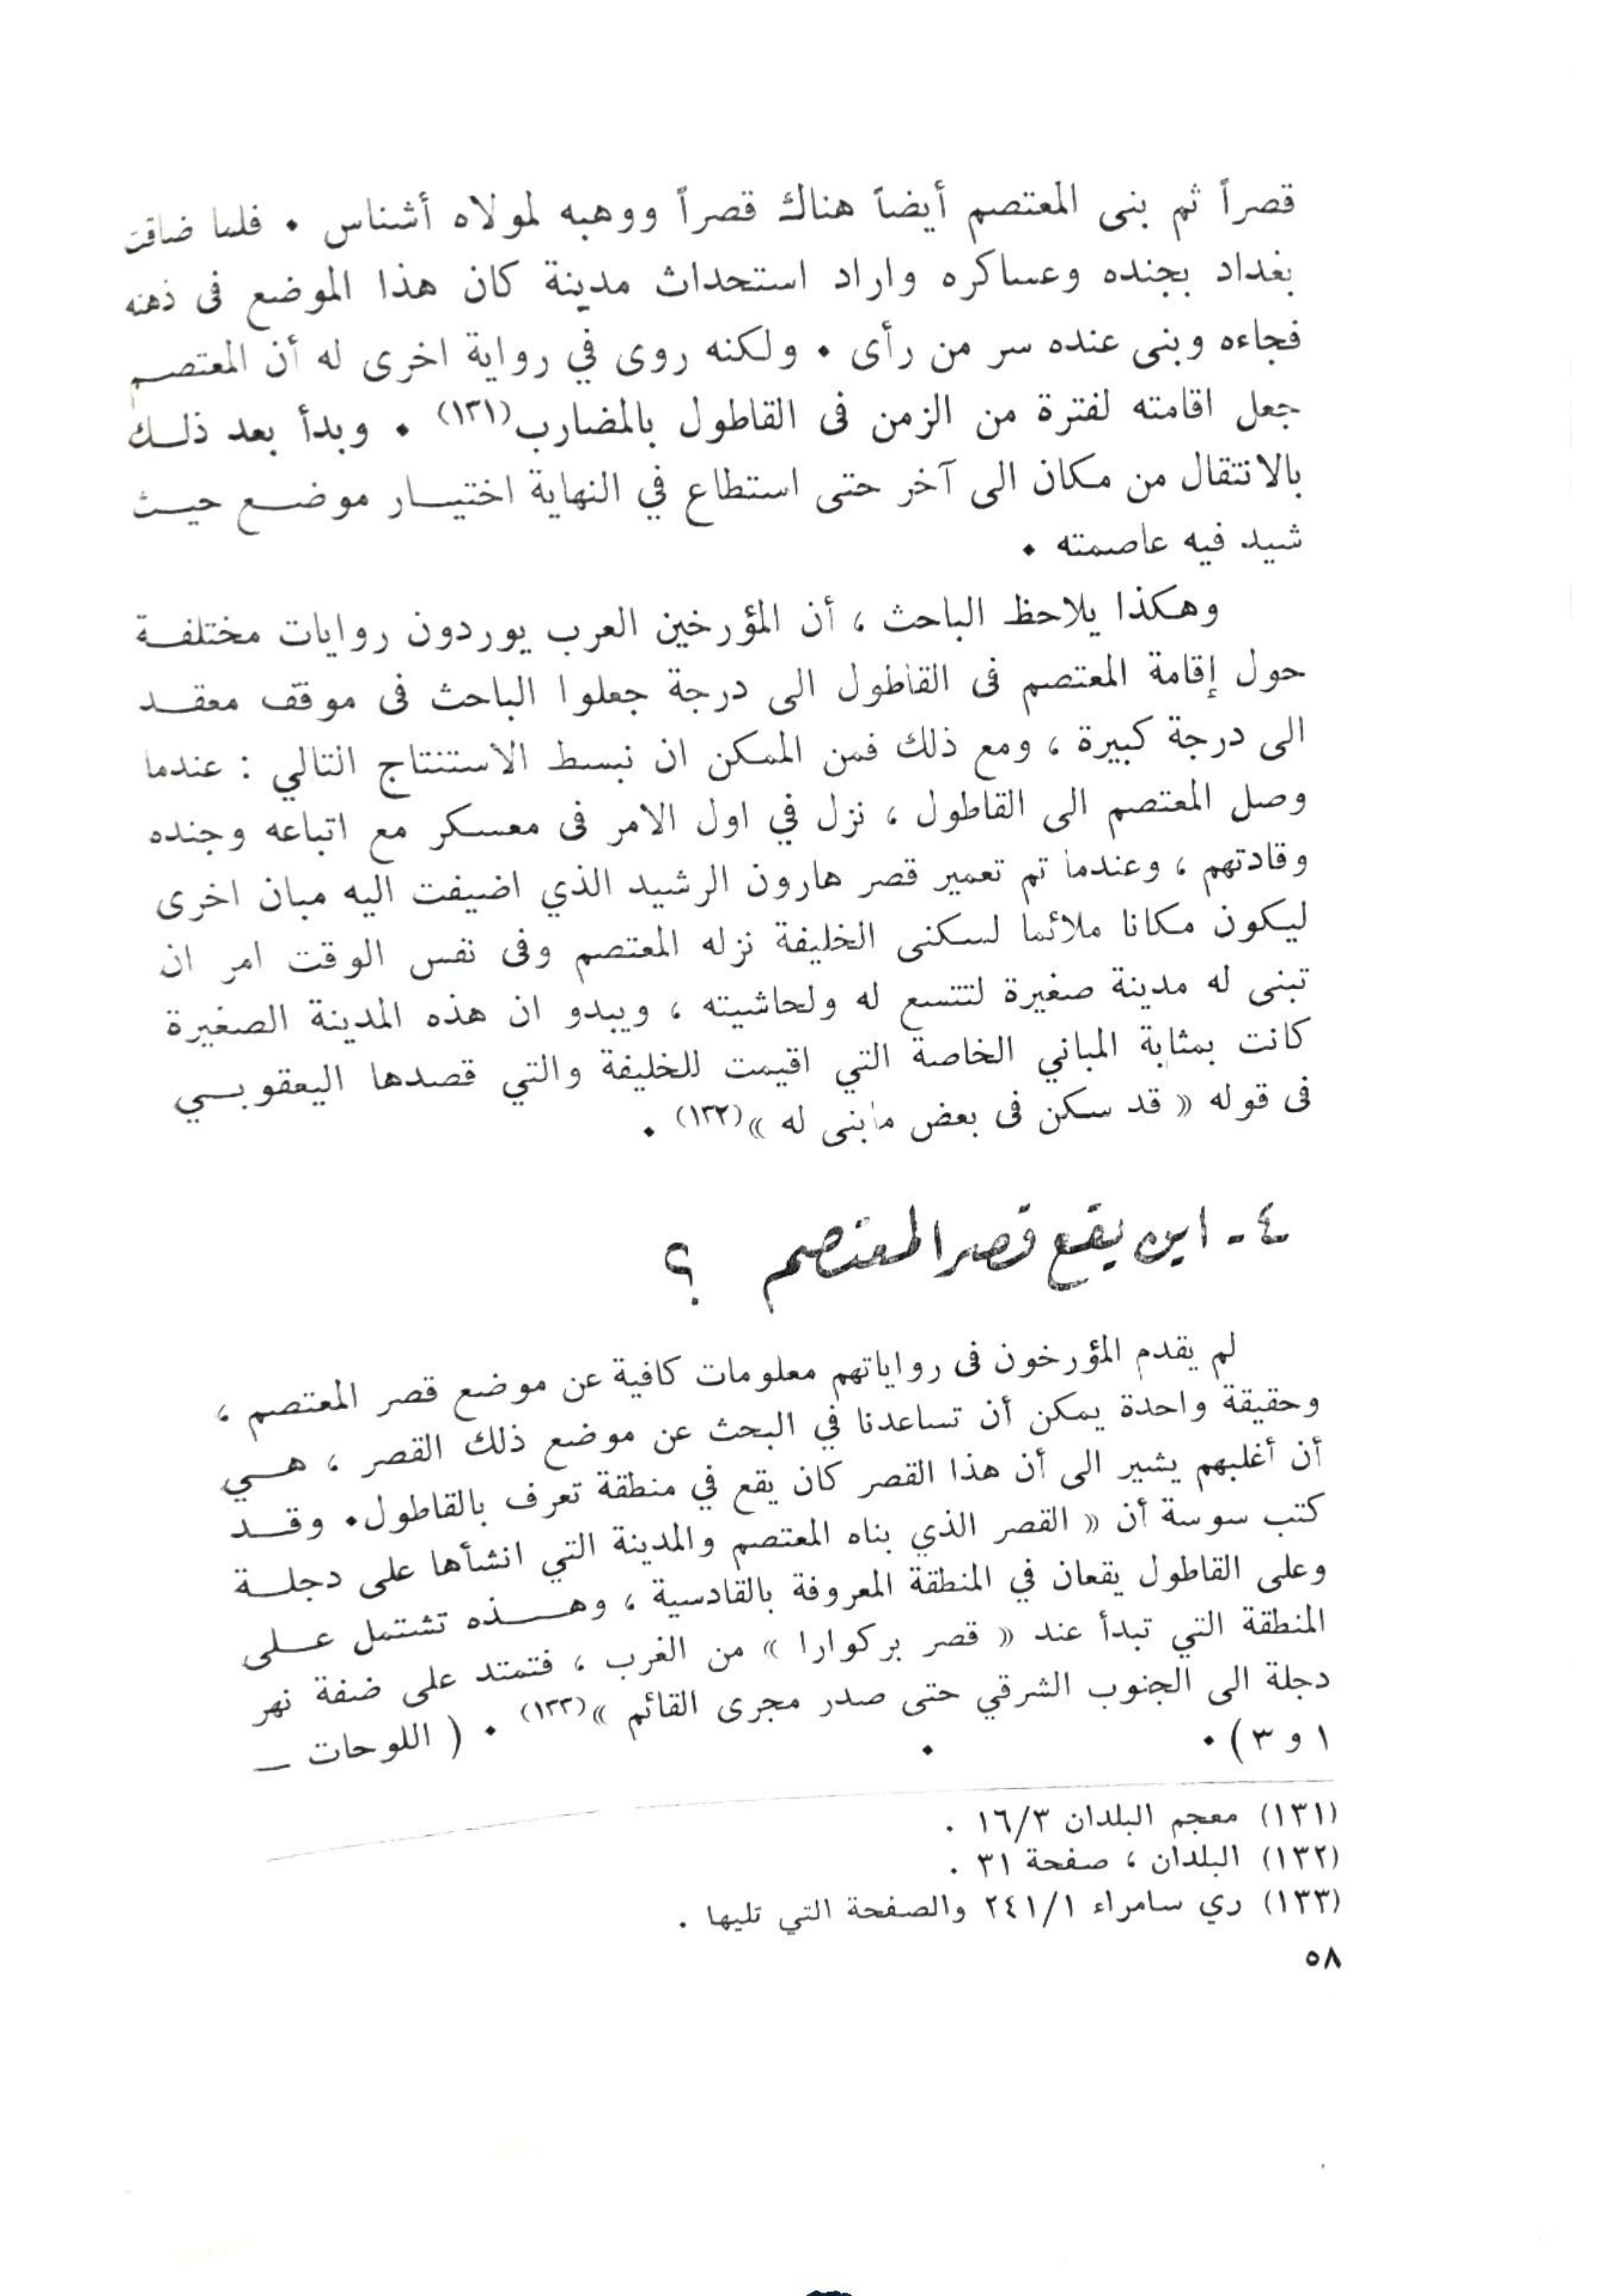 قصراً ثم بنى المعتصم أيضاً هناك قصراً ووهبه لمولاه أشناس • فلما ضاقت
بغداد بجنده وعساكره واراد استحداث مدينة كان هذا الموضع فى ذهنه
فجاءه وبنى عنده سر من رأى • ولكنه روى في رواية اخرى له أن المعتصم
جعل اقامته لفترة من الزمن فى القاطول بالمضارب(١٣١) • وبدأ بعد ذلك
بالانتقال من مكان الى آخر حتى استطاع في النهاية اختيار موضع حيث
شيد فيه عاصمته •
وهكذا يلاحظ الباحث ، أن المؤرخين العرب يوردون روايات مختلفة
حول إقامة المعتصم فى القاطول الى درجة جعلوا الباحث فى موقف معقد
الى درجة كبيرة ، ومع ذلك فمن الممكن ان نبسط الاستنتاج التالي : عندما
وصل المعتصم الى القاطول ، نزل في اول الامر فى معسكر مع اتباعه وجنده
وقادتهم ، وعندما تم تعمير قصر هارون الرشيد الذي اضيفت اليه مبان اخرى
ليكون مكانا ملائما لسكنى الخليفة نزله المعتصم وفى نفس الوقت امر ان
تبنى له مدينة صغيرة لتتسع له ولحاشيته ، ويبدو ان هذه المدينة الصغيرة
كانت بمثابة المباني الخاصة التي اقيمت للخليفة والتي قصدها اليعقوبي
فى قوله « قد سكن فى بعض مابنى له »(١٣٢) •
٤- اين يقع قصر المعتصم ؟
لم يقدم المؤرخون فى رواياتهم معلومات كافية عن موضع قصر المعتصم ،
وحقيقة واحدة يمكن أن تساعدنا في البحث عن موضع ذلك القصر ، هي
أن أغلبهم يشير الى أن هذا القصر كان يقع في منطقة تعرف بالقاطول• وقد
كتب سوسة أن « القصر الذي بناه المعتصم والمدينة التي انشأها على دجلة
وعلى القاطول يقعان في المنطقة المعروفة بالقادسية ، وهذه تشتمل على
المنطقة التي تبدأ عند « قصر بركوارا » من الغرب ، فتمتد على ضفة نهر
دجلة الى الجنوب الشرقي حتى صدر مجرى القائم »(١٣٣) • ( اللوحات –
١ و ٣ ) •
(١٣١) معجم البلدان ١٦/٣ .
(١٣٢) البلدان ، صفحة ٣١ .
(١٣٣) ري سامراء ٢٤١/١ والصفحة التي تليها .
٥٨